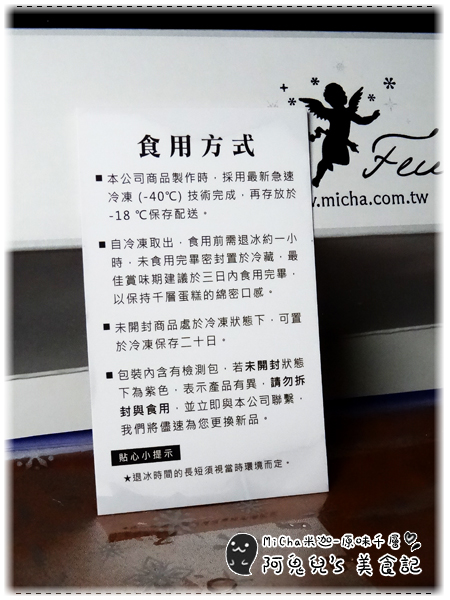 食用方式
■本公司商品製作時，採用最新急速
冷凍 (-40℃) 技術完成，再存放於
-18 ℃保存配送。
■自冷凍取出，食用前需退冰約一小
時，未食用完畢密封置於冷藏，最
佳賞味期建議於三日內食用完畢，
以保持千層蛋糕的綿密口感。
■未開封商品處於冷凍狀態下，可置
於冷凍保存二十日。
■包裝內含有檢測包，若未開封狀態
下為紫色，表示產品有異，請勿拆
封與食用，並立即與本公司聯繫，
我們將儘速為您更換新品。
貼心小提示
★退冰時間的長短須視當時環境而定。
Feu
w.micha.com.tw
MiCha米迦-原味千層
阿兔兒's 美食記